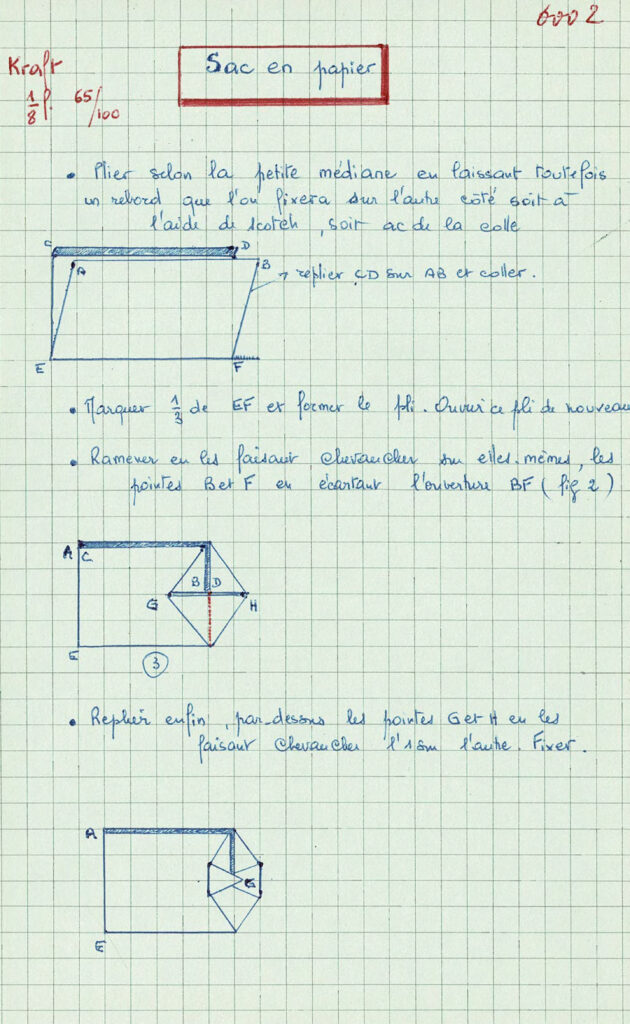 6002
Kraft
1/8 f. 65/100
Sac en papier
• Plier selon la petite médiane en laissant toutefois
un rebord que l'on fixera sur l'autre côté soit à
l'aide de scotch, soit ac de la colle
C D
A B
→ replier CD sur AB et coller.
E F
• Marquer 1/3 de EF et former le pli. Ouvrir ce pli de nouveau
• Ramener en les faisant chevaucher sur elles-mêmes, les
pointes B et F en écartant l'ouverture BF (fig 2)
A C
B D
G H
E
3
• Replier enfin, par-dessous les pointes G et H en les
faisant chevaucher l'1 sur l'autre. Fixer.
A
G
E